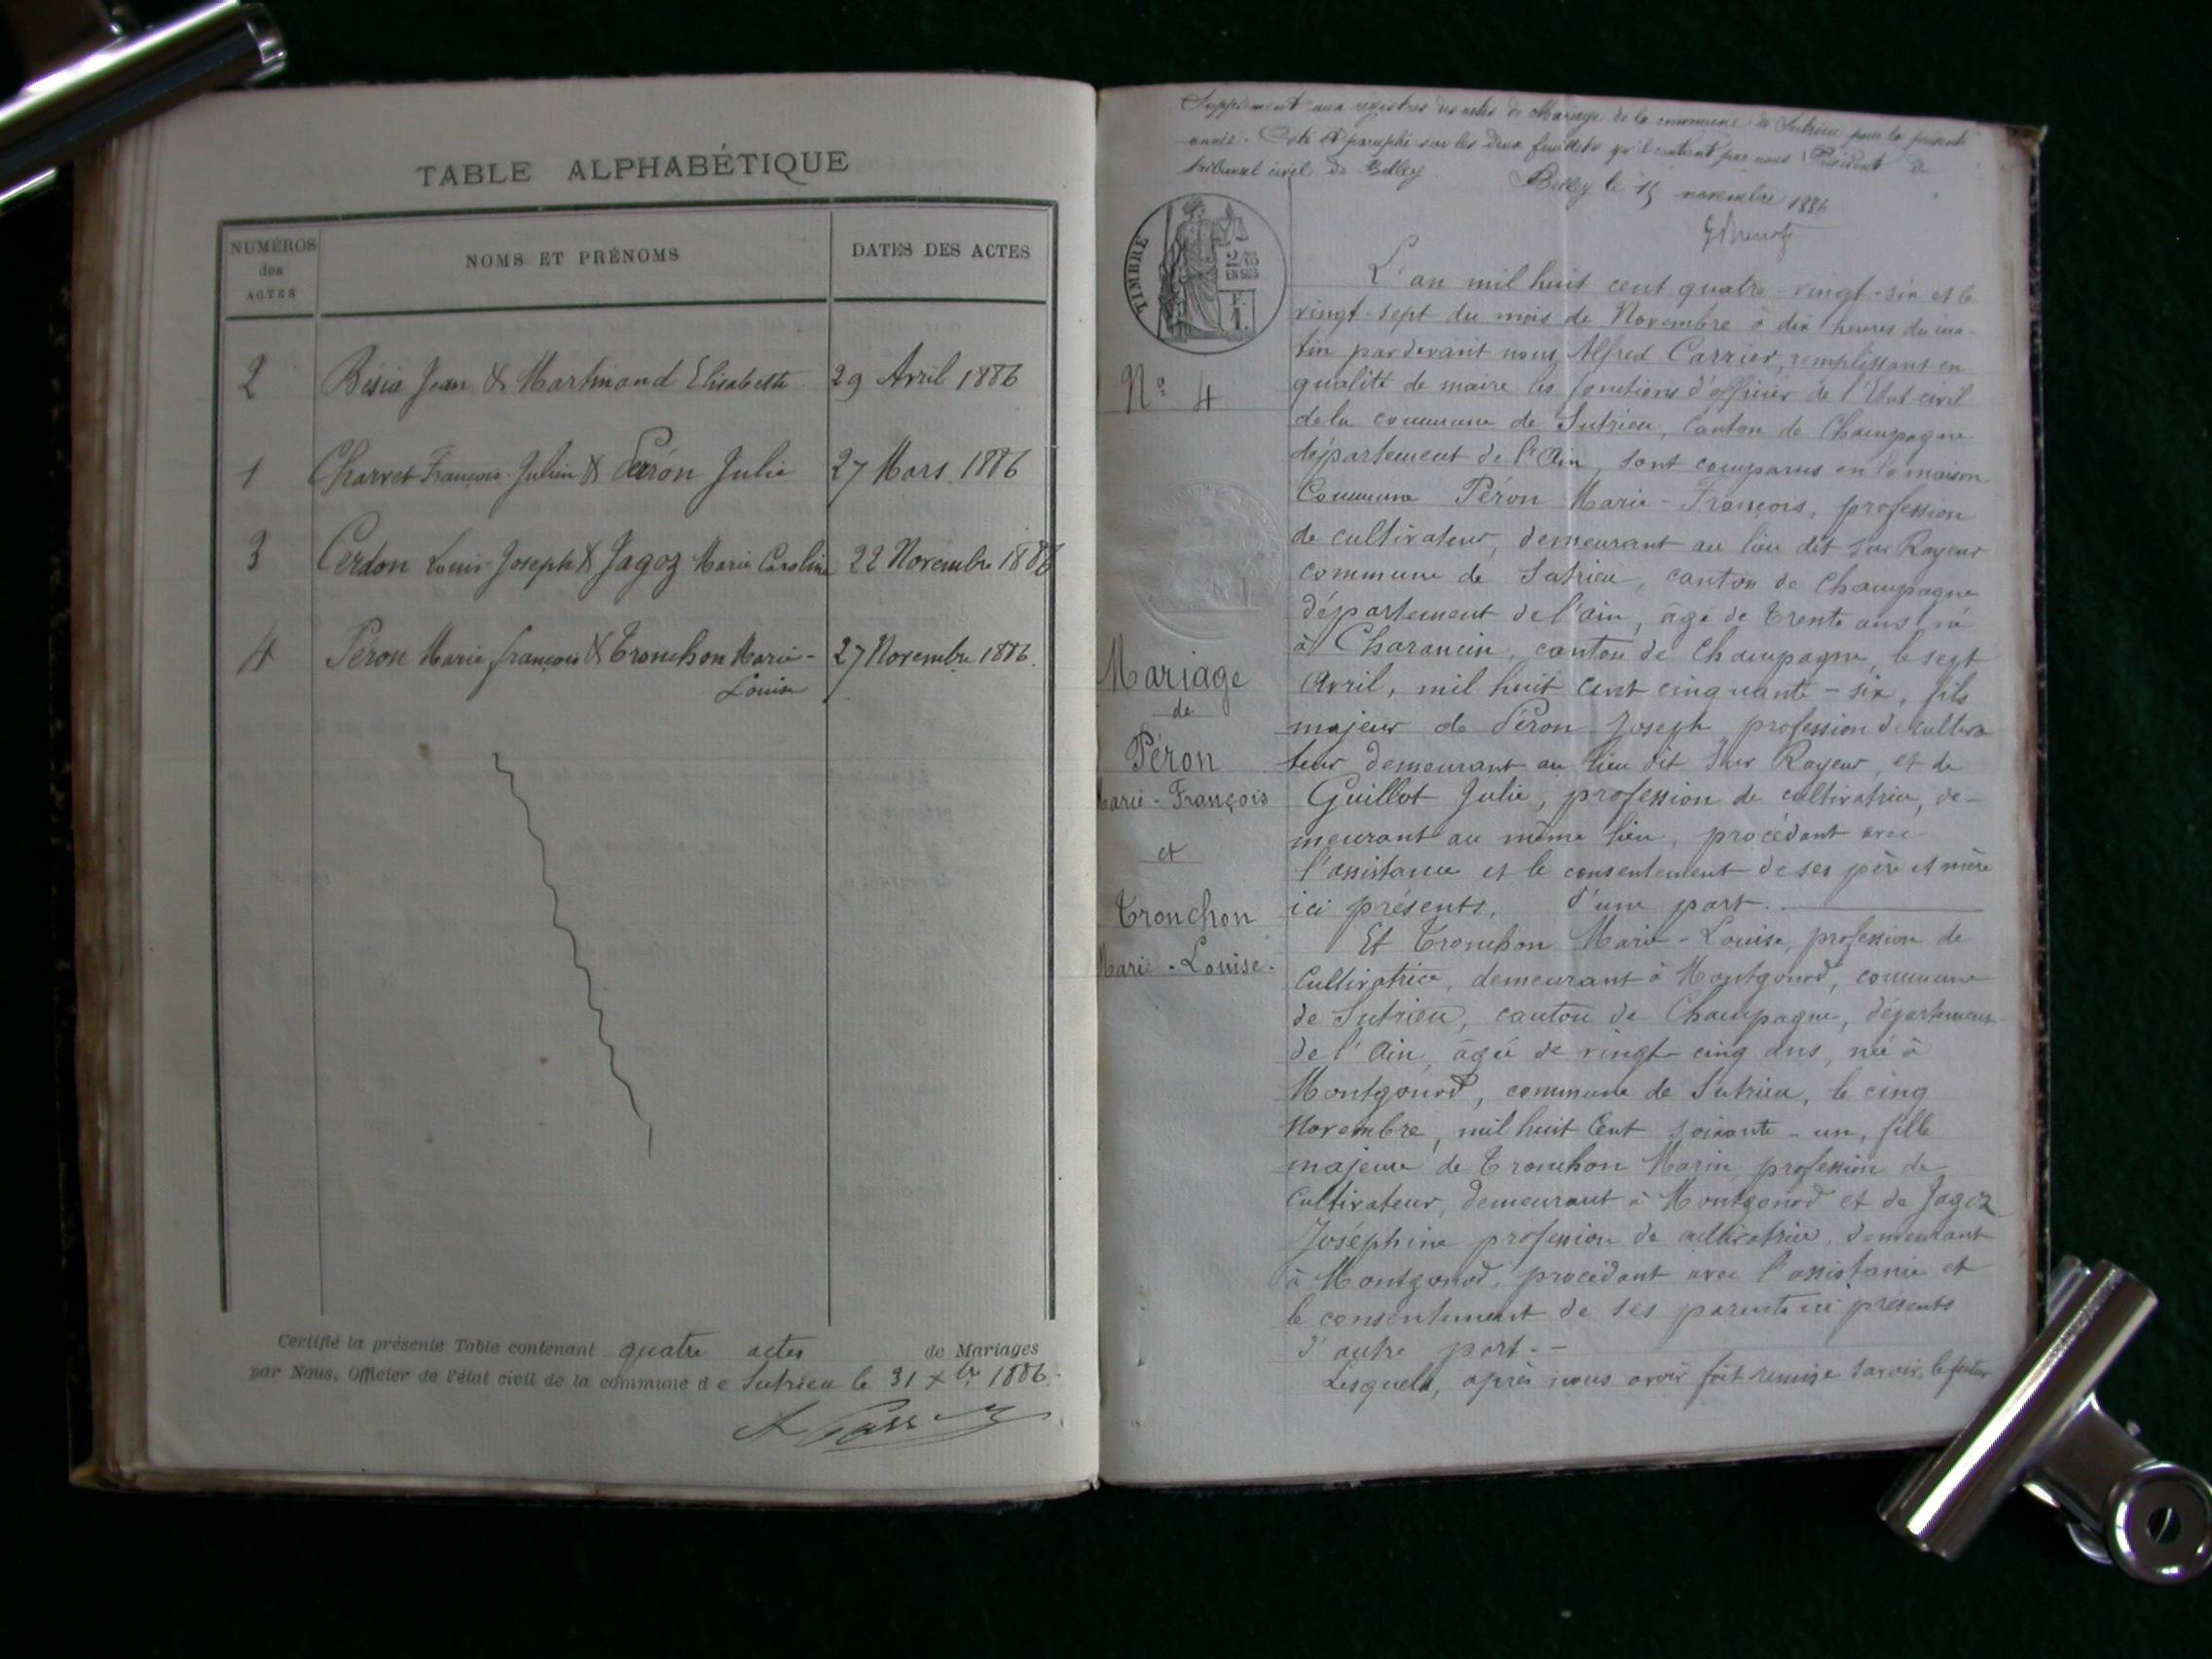 TABLE ALPHABÉTIQUE
NUMÉROS
des
ACTES
NOMS ET PRÉNOMS
DATES DES ACTES
2 Bésia Jean & Martinand Elisabeth 29 Avril 1886
1 Charvet François-Julien & Perrón Julie 27 Mars 1886
3 Cerdon Louis-Joseph & Jagoz Marie Caroline 22 Novembre 1886
4 Péron Marie françois & Tronchon Marie- 27 Novembre 1886.
Louise
Certifié la présente Table contenant quatre actes de Mariages
par Nous, Officier de l'état civil de la commune de Sutrieu le 31 Xbre 1886.
Supplément aux registres des actes de Mariage de la commune de Sutrieu pour la présente
année. Coté et paraphé sur les deux feuillets qu'il contient par nous Président du
tribunal civil de Belley.
Belley le 15 novembre 1886
TIMBRE
2/10
EN SUS
F.
1.
L'an mil huit cent quatre-vingt-six et le
vingt-sept du mois de Novembre à dix heures du ma-
tin pardevant nous Alfred Carrier, remplissant en
qualité de maire les fonctions d'officier de l'Etat-civil
de la commune de Sutrieu, Canton de Champagne
département de l'Ain, sont comparus en la maison
Commune Péron Marie-François, profession
de cultivateur, demeurant au lieu dit sur Rayeur
commune de Sutrieu, canton de Champagne
département de l'ain, âgé de trente ans, né
à Charancin, canton de Champagne, le sept
Avril, mil huit cent cinquante-six, fils
majeur de Péron Joseph profession de cultiva
teur demeurant au lieu dit sur Rayeur, et de
Guillot Julie, profession de cultivatrice, de-
meurant au même lieu, procédant avec
l'assistance et le consentement de ses père et mère
ici présents, d'une part.
Et Tronchon Marie-Louise, profession de
Cultivatrice, demeurant à Montgonod, commune
de Sutrieu, canton de Champagne, département
de l'Ain, âgée de vingt-cinq ans, née à
Montgonod, commune de Sutrieu, le cinq
Novembre, mil huit Cent soixante-un, fille
majeure de Tronchon Marin profession de
Cultivateur, demeurant à Montgonod et de Jagoz
Joséphine profession de cultivatrice, demeurant
à Montgonod, procédant avec l'assistance et
le consentement de ses parents ici présents
d'autre part.-
Lesquels, après nous avoir fait remise savoir, le futur
N° 4
Mariage
de
Péron
Marie-François
et
Tronchon
Marie-Louise.